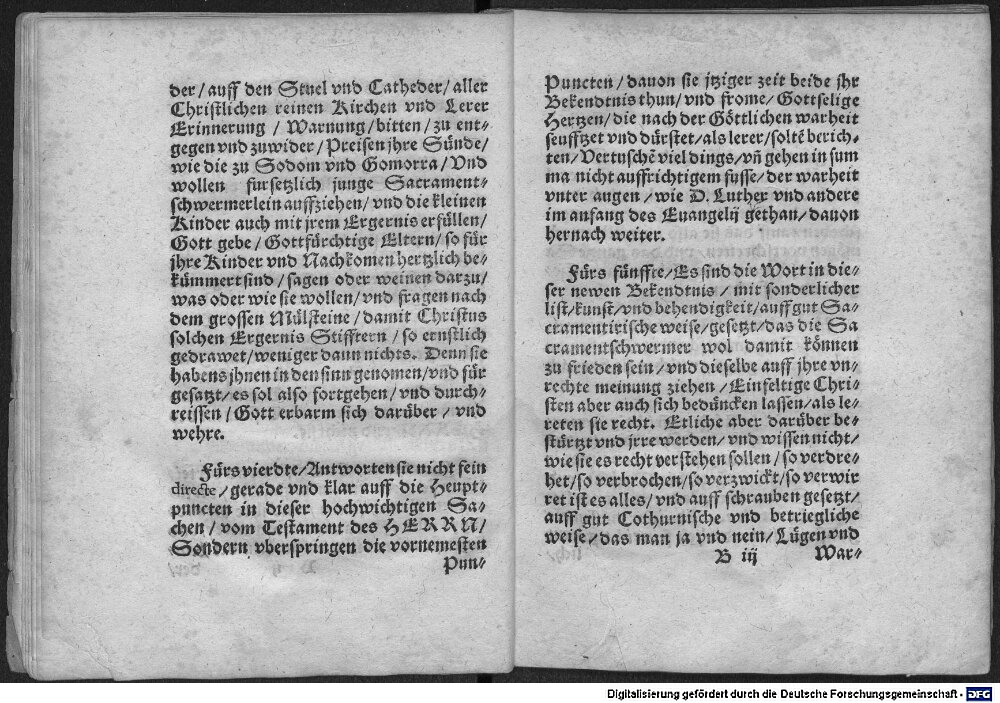 der/auff den Stuel vnd Catheder/aller
Christlichen reinen Kirchen vnd Lerer
Erinnerung / Warnung/bitten/zu ent⸗
gegen vnd zuwider/Preisen jhre Sünde/
wie die zu Sodom vnd Gomorra/Vnd
wollen fursetzlich junge Sacrament⸗
schwermerlein auffziehen/vnd die kleinen
Kinder auch mit jrem Ergernis erfüllen/
Gott gebe/Gottfürchtige Eltern/so für
jhre Kinder vnd Nachkomen hertzlich be⸗
kümmert sind/sagen oder weinen darzu/
was oder wie sie wollen/vnd fragen nach
dem grossen Mülsteine/damit Christus
solchen Ergernis Stifftern/so ernstlich
gedrawet/weniger dann nichts. Denn sie
habens jhnen in den sinn genomen/vnd für
gesatzt/es sol also fortgehen/vnd durch⸗
reissen/Gott erbarm sich darüber/vnd
wehre.
Fürs vierdte/Antworten sie nicht fein
directe/gerade vnd klar auff die Heupt⸗
puncten in dieser hochwichtigen Sa⸗
chen/vom Testament des HERRN/
Sondern vberspringen die vornemesten
Pun⸗
Puncten/dauon sie jtziger zeit beide jhr
Bekendtnis thun/vnd frome/Gottselige
Hertzen/die nach der Göttlichen warheit
seufftzet vnd dürstet/als lerer/soltē berich⸗
ten/Vertuschē viel dings/vn̄ gehen in sum
ma nicht auffrichtigem fusse/der warheit
vnter augen/wie D. Luther vnd andere
im anfang des Euangelij gethan/dauon
hernach weiter.
Fürs fünffte/Es sind die Wort in die⸗
ser newen Bekendtnis/mit sonderlicher
list/kunst/vnd behendigkeit/auff gut Sa⸗
cramentirische weise/gesetzt/das die Sa
cramentschwermer wol damit können
zu frieden sein/vnd dieselbe auff jhre vn⸗
rechte meinung ziehen/Einfeltige Chri⸗
sten aber auch sich bedüncken lassen/als le⸗
reten sie recht. Etliche aber darüber be⸗
stürtzt vnd jrre werden/vnd wissen nicht/
wie sie es recht verstehen sollen/so verdre⸗
het/so verbrochen/so verzwickt/so verwir
ret ist es alles/vnd auff schrauben gesetzt/
auff gut Cothurnische vnd betriegliche
weise/das man ja vnd nein/Lügen vnd
B iij War⸗
Digitalisierung gefördert durch die Deutsche Forschungsgemeinschaft - DFG